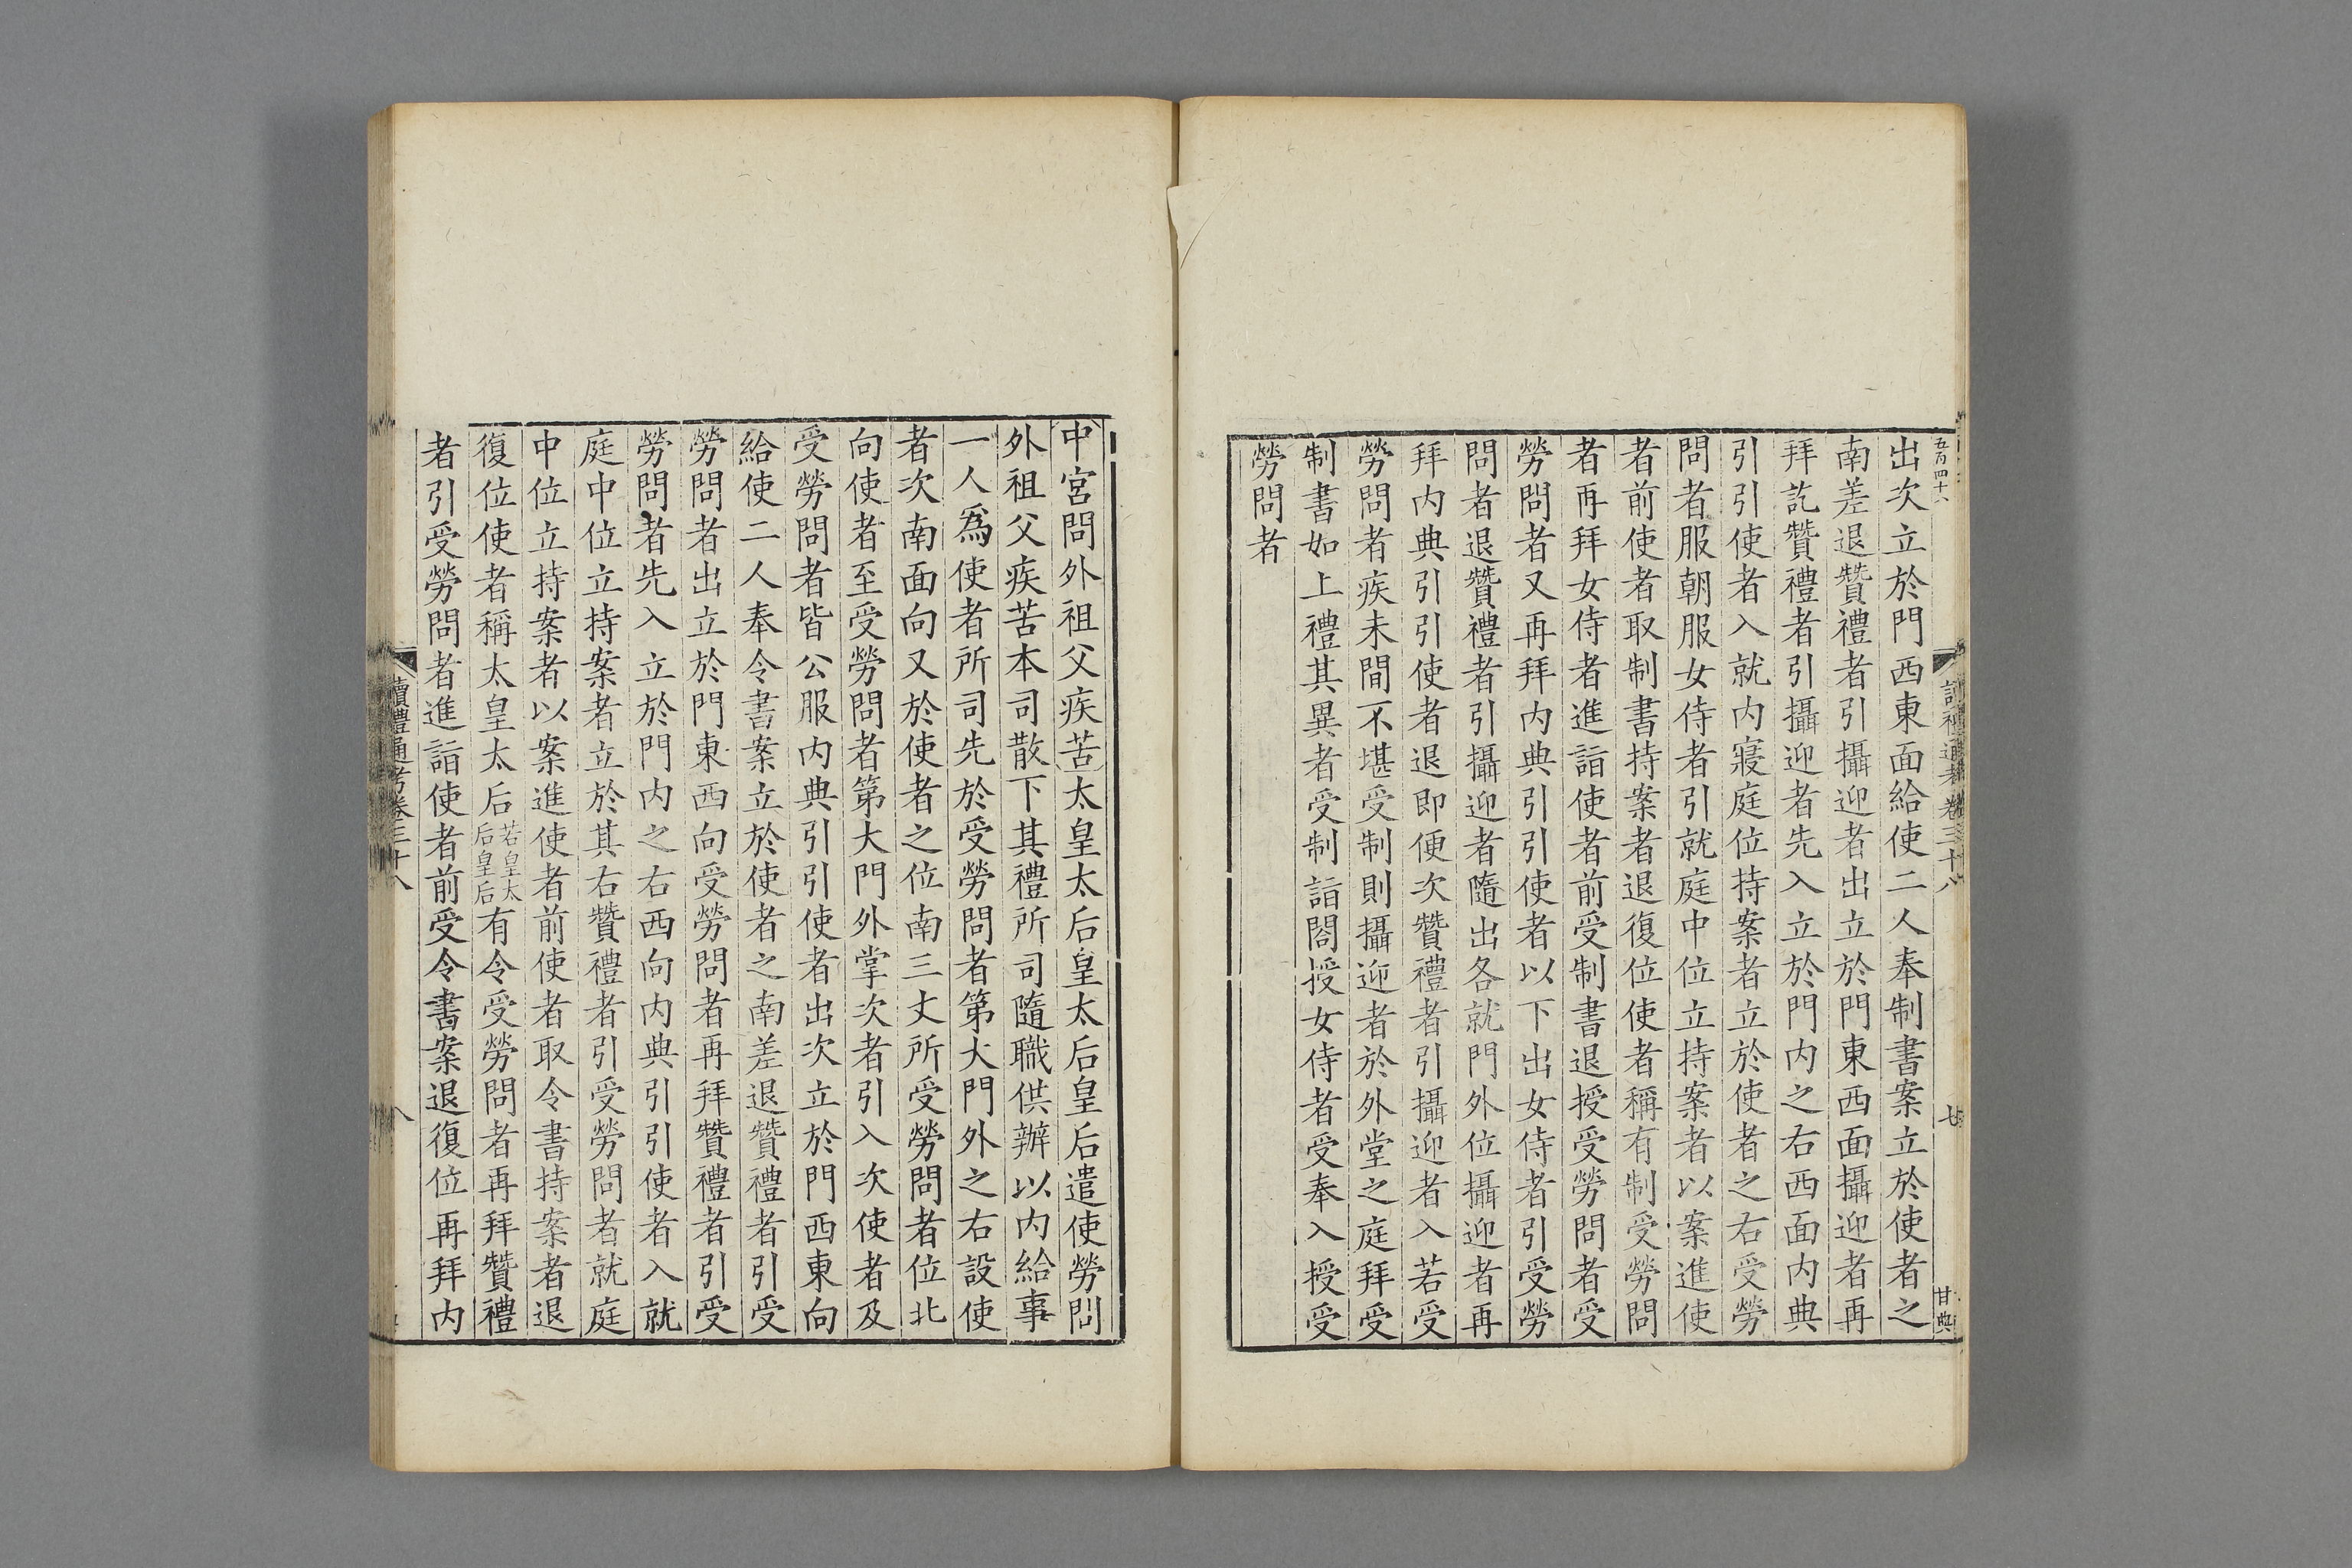 五百四十八
讀禮通考卷三十八
七
甘典
出次立於門西東面給使二人奉制書案立於使者之
南差退贊禮者引攝迎者出立於門東西面攝迎者再
拜訖贊禮者引攝迎者先入立於門内之右西面内典
引引使者入就内寢庭位持案者立於使者之右受勞
問者服朝服女侍者引就庭中位立持案者以案進使
者前使者取制書持案者退復位使者稱有制受勞問
者再拜女侍者進詣使者前受制書退授受勞問者受
勞問者又再拜内典引引使者以下出女侍者引受勞
問者退贊禮者引攝迎者隨出各就門外位攝迎者再
拜内典引引使者退即便次贊禮者引攝迎者入若受
勞問者疾未間不堪受制則攝迎者於外堂之庭拜受
制書如上禮其異者受制詣閤授女侍者受奉入授受
勞問者
中宮問外祖父疾苦太皇太后皇太后皇后遣使勞問
外祖父疾苦本司散下其禮所司隨職供辦以内給事
一人爲使者所司先於受勞問者第大門外之右設使
者次南面向又於使者之位南三丈所受勞問者位北
向使者至受勞問者第大門外掌次者引入次使者及
受勞問者皆公服内典引引使者出次立於門西東向
給使二人奉令書案立於使者之南差退贊禮者引受
勞問者出立於門東西向受勞問者再拜贊禮者引受
勞問者先入立於門内之右西向内典引引使者入就
庭中位立持案者立於其右贊禮者引受勞問者就庭
中位立持案者以案進使者前使者取令書持案者退
復位使者稱太皇太后若皇太后皇后有令受勞問者再拜贊禮
者引受勞問者進詣使者前受令書案退復位再拜内
讀禮通考卷三十八
八